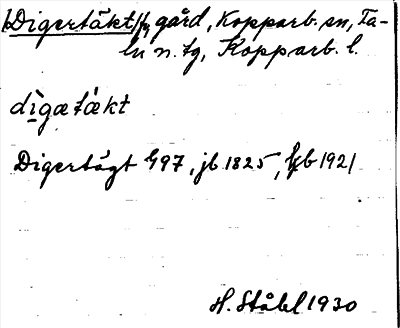 Digertäkt, gård, Kopparb. sn, Fa-
lu n. tg, Kopparb. l.
dìgætǽkt
Digertägt 497, jb 1825, kb 1921
H. Ståhl 1930